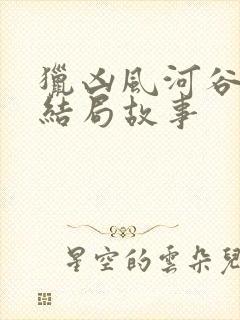 獵凶風河谷
結局故事
星空的雲朵兒